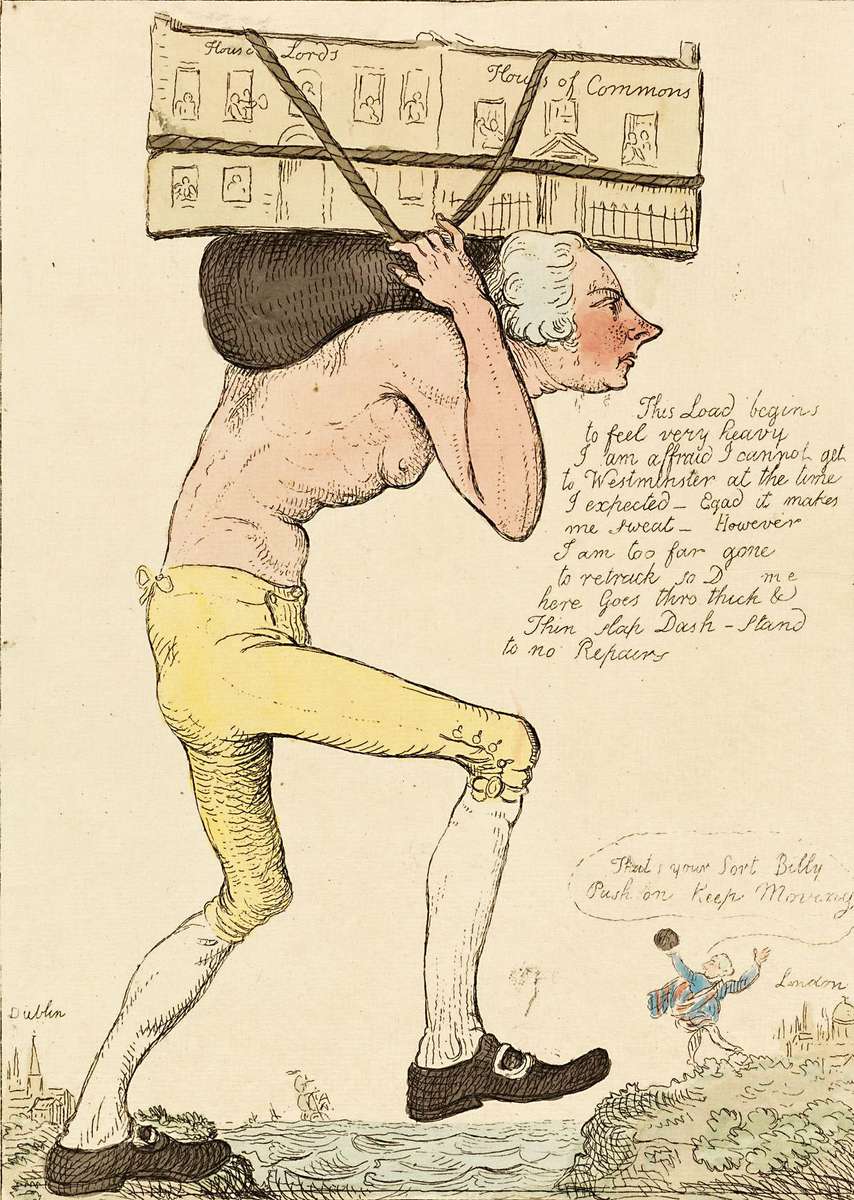 House Lords
House of Commons
This Load begins
to feel very heavy
I am affraid I cannot get
to Westminster at the time
I expected – Egad it makes
me sweat – However
I am too far gone
to retrack so D me
here Goes thro thick &
Thin slap Dash – Stand
to no Repairs
That's your Sort Billy
Push on Keep Moving
London
Dublin